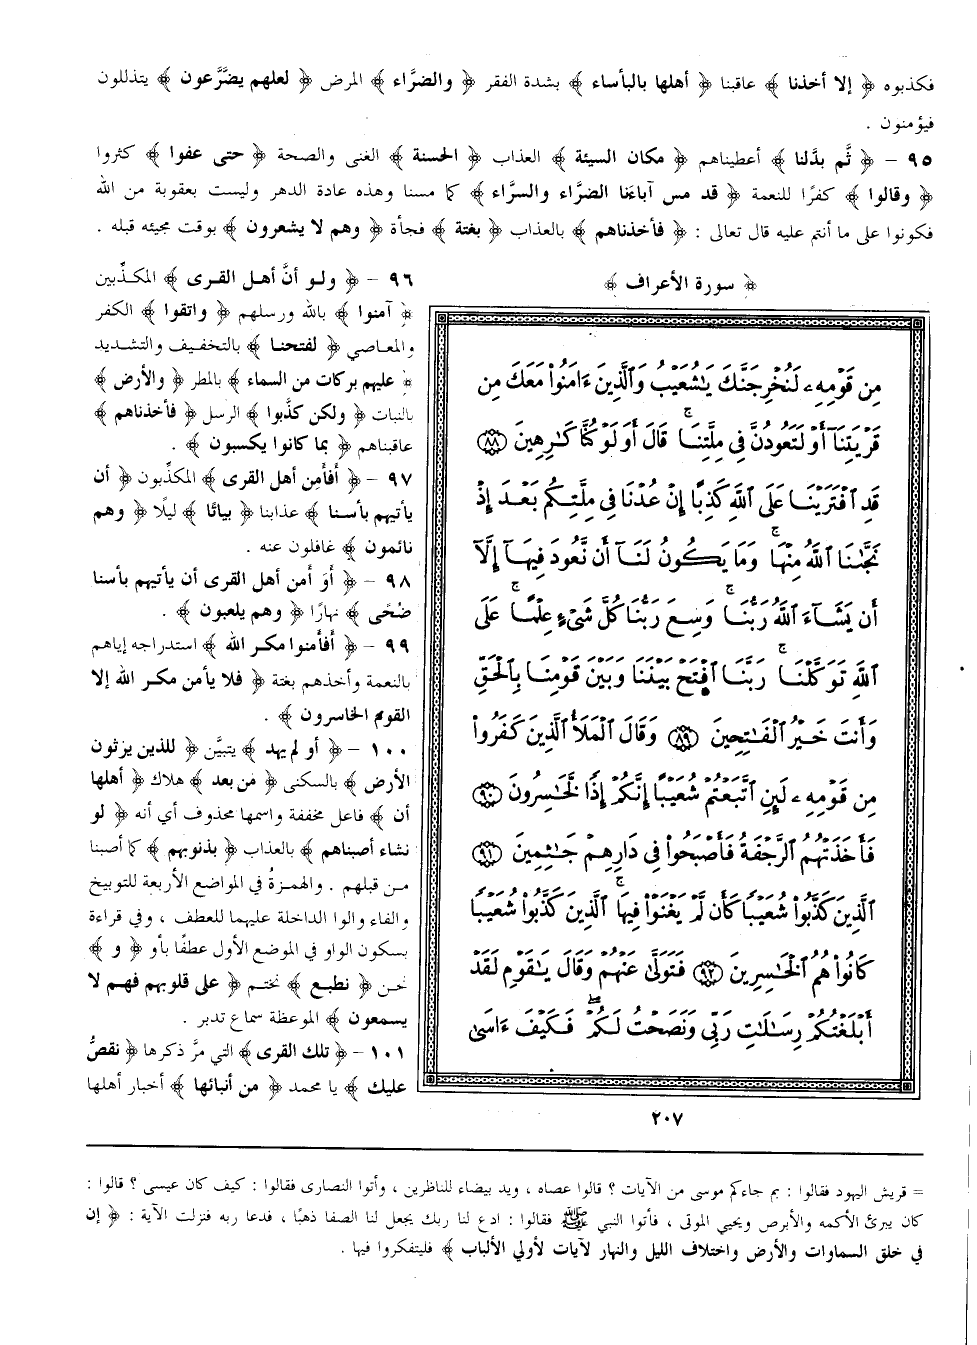 فكذبوه ﴿ إلا أخذنا ﴾ عاقبنا ﴿ أهلها بالبأساء ﴾ بشدة الفقر ﴿ والضرَّاء ﴾ المرض ﴿ لعلهم يضَّرَّعون ﴾ يتذللون
فيؤمنون .
٩٥ - ﴿ ثَّم بدَّلنا ﴾ أعطيناهم ﴿ مكان السيئة ﴾ العذاب ﴿ الحسنة ﴾ الغنى والصحة ﴿ حتى عفوا ﴾ كثروا
﴿ وقالوا ﴾ كفرًا للنعمة ﴿ قد مس آباءنا الضرَّاء والسرَّاء ﴾ كما مسنا وهذه عادة الدهر وليست بعقوبة من الله
فكونوا على ما أنتم عليه قال تعالى : ﴿ فأخذناهم ﴾ بالعذاب ﴿ بغتة ﴾ فجأة ﴿ وهم لا يشعرون ﴾ بوقت مجيئه قبله .
﴿ سورة الأعراف ﴾
مِن قَوْمِهِۦ لَنُخْرِجَنَّكَ يَٰشُعَيْبُ وَٱلَّذِينَ ءَامَنُوا۟ مَعَكَ مِن
قَرْيَتِنَآ أَوْ لَتَعُودُنَّ فِى مِلَّتِنَا ۚ قَالَ أَوَلَوْ كُنَّا كَٰرِهِينَ ٨٨
قَدِ ٱفْتَرَيْنَا عَلَى ٱللَّهِ كَذِبًا إِنْ عُدْنَا فِى مِلَّتِكُم بَعْدَ إِذْ
نَجَّىٰنَا ٱللَّهُ مِنْهَا ۚ وَمَا يَكُونُ لَنَآ أَن نَّعُودَ فِيهَآ إِلَّآ
أَن يَشَآءَ ٱللَّهُ رَبُّنَا ۚ وَسِعَ رَبُّنَا كُلَّ شَىْءٍ عِلْمًا ۚ عَلَى
ٱللَّهِ تَوَكَّلْنَا ۚ رَبَّنَا ٱفْتَحْ بَيْنَنَا وَبَيْنَ قَوْمِنَا بِٱلْحَقِّ
وَأَنتَ خَيْرُ ٱلْفَٰتِحِينَ ٨٩ وَقَالَ ٱلْمَلَأُ ٱلَّذِينَ كَفَرُوا۟
مِن قَوْمِهِۦ لَئِنِ ٱتَّبَعْتُمْ شُعَيْبًا إِنَّكُمْ إِذًا لَّخَٰسِرُونَ ٩٠
فَأَخَذَتْهُمُ ٱلرَّجْفَةُ فَأَصْبَحُوا۟ فِى دَارِهِمْ جَٰثِمِينَ ٩١
ٱلَّذِينَ كَذَّبُوا۟ شُعَيْبًا كَأَن لَّمْ يَغْنَوْا۟ فِيهَا ۚ ٱلَّذِينَ كَذَّبُوا۟ شُعَيْبًا
كَانُوا۟ هُمُ ٱلْخَٰسِرِينَ ٩٢ فَتَوَلَّىٰ عَنْهُمْ وَقَالَ يَٰقَوْمِ لَقَدْ
أَبْلَغْتُكُمْ رِسَٰلَٰتِ رَبِّى وَنَصَحْتُ لَكُمْ ۖ فَكَيْفَ ءَاسَىٰ
٢٠٧
٩٦ - ﴿ ولو أنَّ أهل القرى ﴾ المكذِّبين
﴿ آمنوا ﴾ بالله ورسلهم ﴿ واتقوا ﴾ الكفر
والمعاصي ﴿ لفتحنا ﴾ بالتخفيف والتشديد
﴿ عليهم بركات من السماء ﴾ بالمطر ﴿ والأرض ﴾
بالنبات ﴿ ولكن كذَّبوا ﴾ الرسل ﴿ فأخذناهم ﴾
عاقبناهم ﴿ بما كانوا يكسبون ﴾ .
٩٧ - ﴿ أفأمِن أهل القرى ﴾ المكذِّبون ﴿ أن
يأتيهم بأسنا ﴾ عذابنا ﴿ بياتًا ﴾ ليلًا ﴿ وهم
نائمون ﴾ غافلون عنه .
٩٨ - ﴿ أوَ أمن أهل القرى أن يأتيهم بأسنا
ضُحًى ﴾ نهارًا ﴿ وهم يلعبون ﴾ .
٩٩ - ﴿ أفأمنوا مكر الله ﴾ استدراجه إياهم
بالنعمة وأخذهم بغتة ﴿ فلا يأمن مكر الله إلا
القوم الخاسرون ﴾ .
١٠٠ - ﴿ أو لم يهد ﴾ يتبيَّن ﴿ للذين يرثون
الأرض ﴾ بالسكنى ﴿ من بعد ﴾ هلاك ﴿ أهلها
أن ﴾ فاعل مخففة واسمها محذوف أي أنه ﴿ لو
نشاء أصبناهم ﴾ بالعذاب ﴿ بذنوبهم ﴾ كما أصبنا
من قبلهم . والهمزةُ في المواضع الأربعة للتوبيخ
والفاء والوا الداخلة عليهما للعطف ، وفي قراءة
بسكون الواو في الموضع الأول عطفًا بأو ﴿ و ﴾
نحن ﴿ نطبع ﴾ نختم ﴿ على قلوبهم فهم لا
يسمعون ﴾ الموعظة سماع تدبر .
١٠١ - ﴿ تلك القرى ﴾ التي مرَّ ذكرها ﴿ نقصُّ
عليك ﴾ يا محمد ﴿ من أنبائها ﴾ أخبار أهلها
= قريش اليهود فقالوا : بم جاءكم موسى من الآيات ؟ قالوا عصاه ، ويد بيضاء للناظرين ، وأتوا النصارى فقالوا : كيف كان عيسى ؟ قالوا :
كان يبرئ الأكمه والأبرص ويحيي الموتى ، فأتوا النبي ﷺ فقالوا : ادع لنا ربك يجعل لنا الصفا ذهبًا ، فدعا ربه فنزلت الآية : ﴿ إن
في خلق السماوات والأرض واختلاف الليل والنهار لآيات لأولي الألباب ﴾ فليتفكروا فيها .